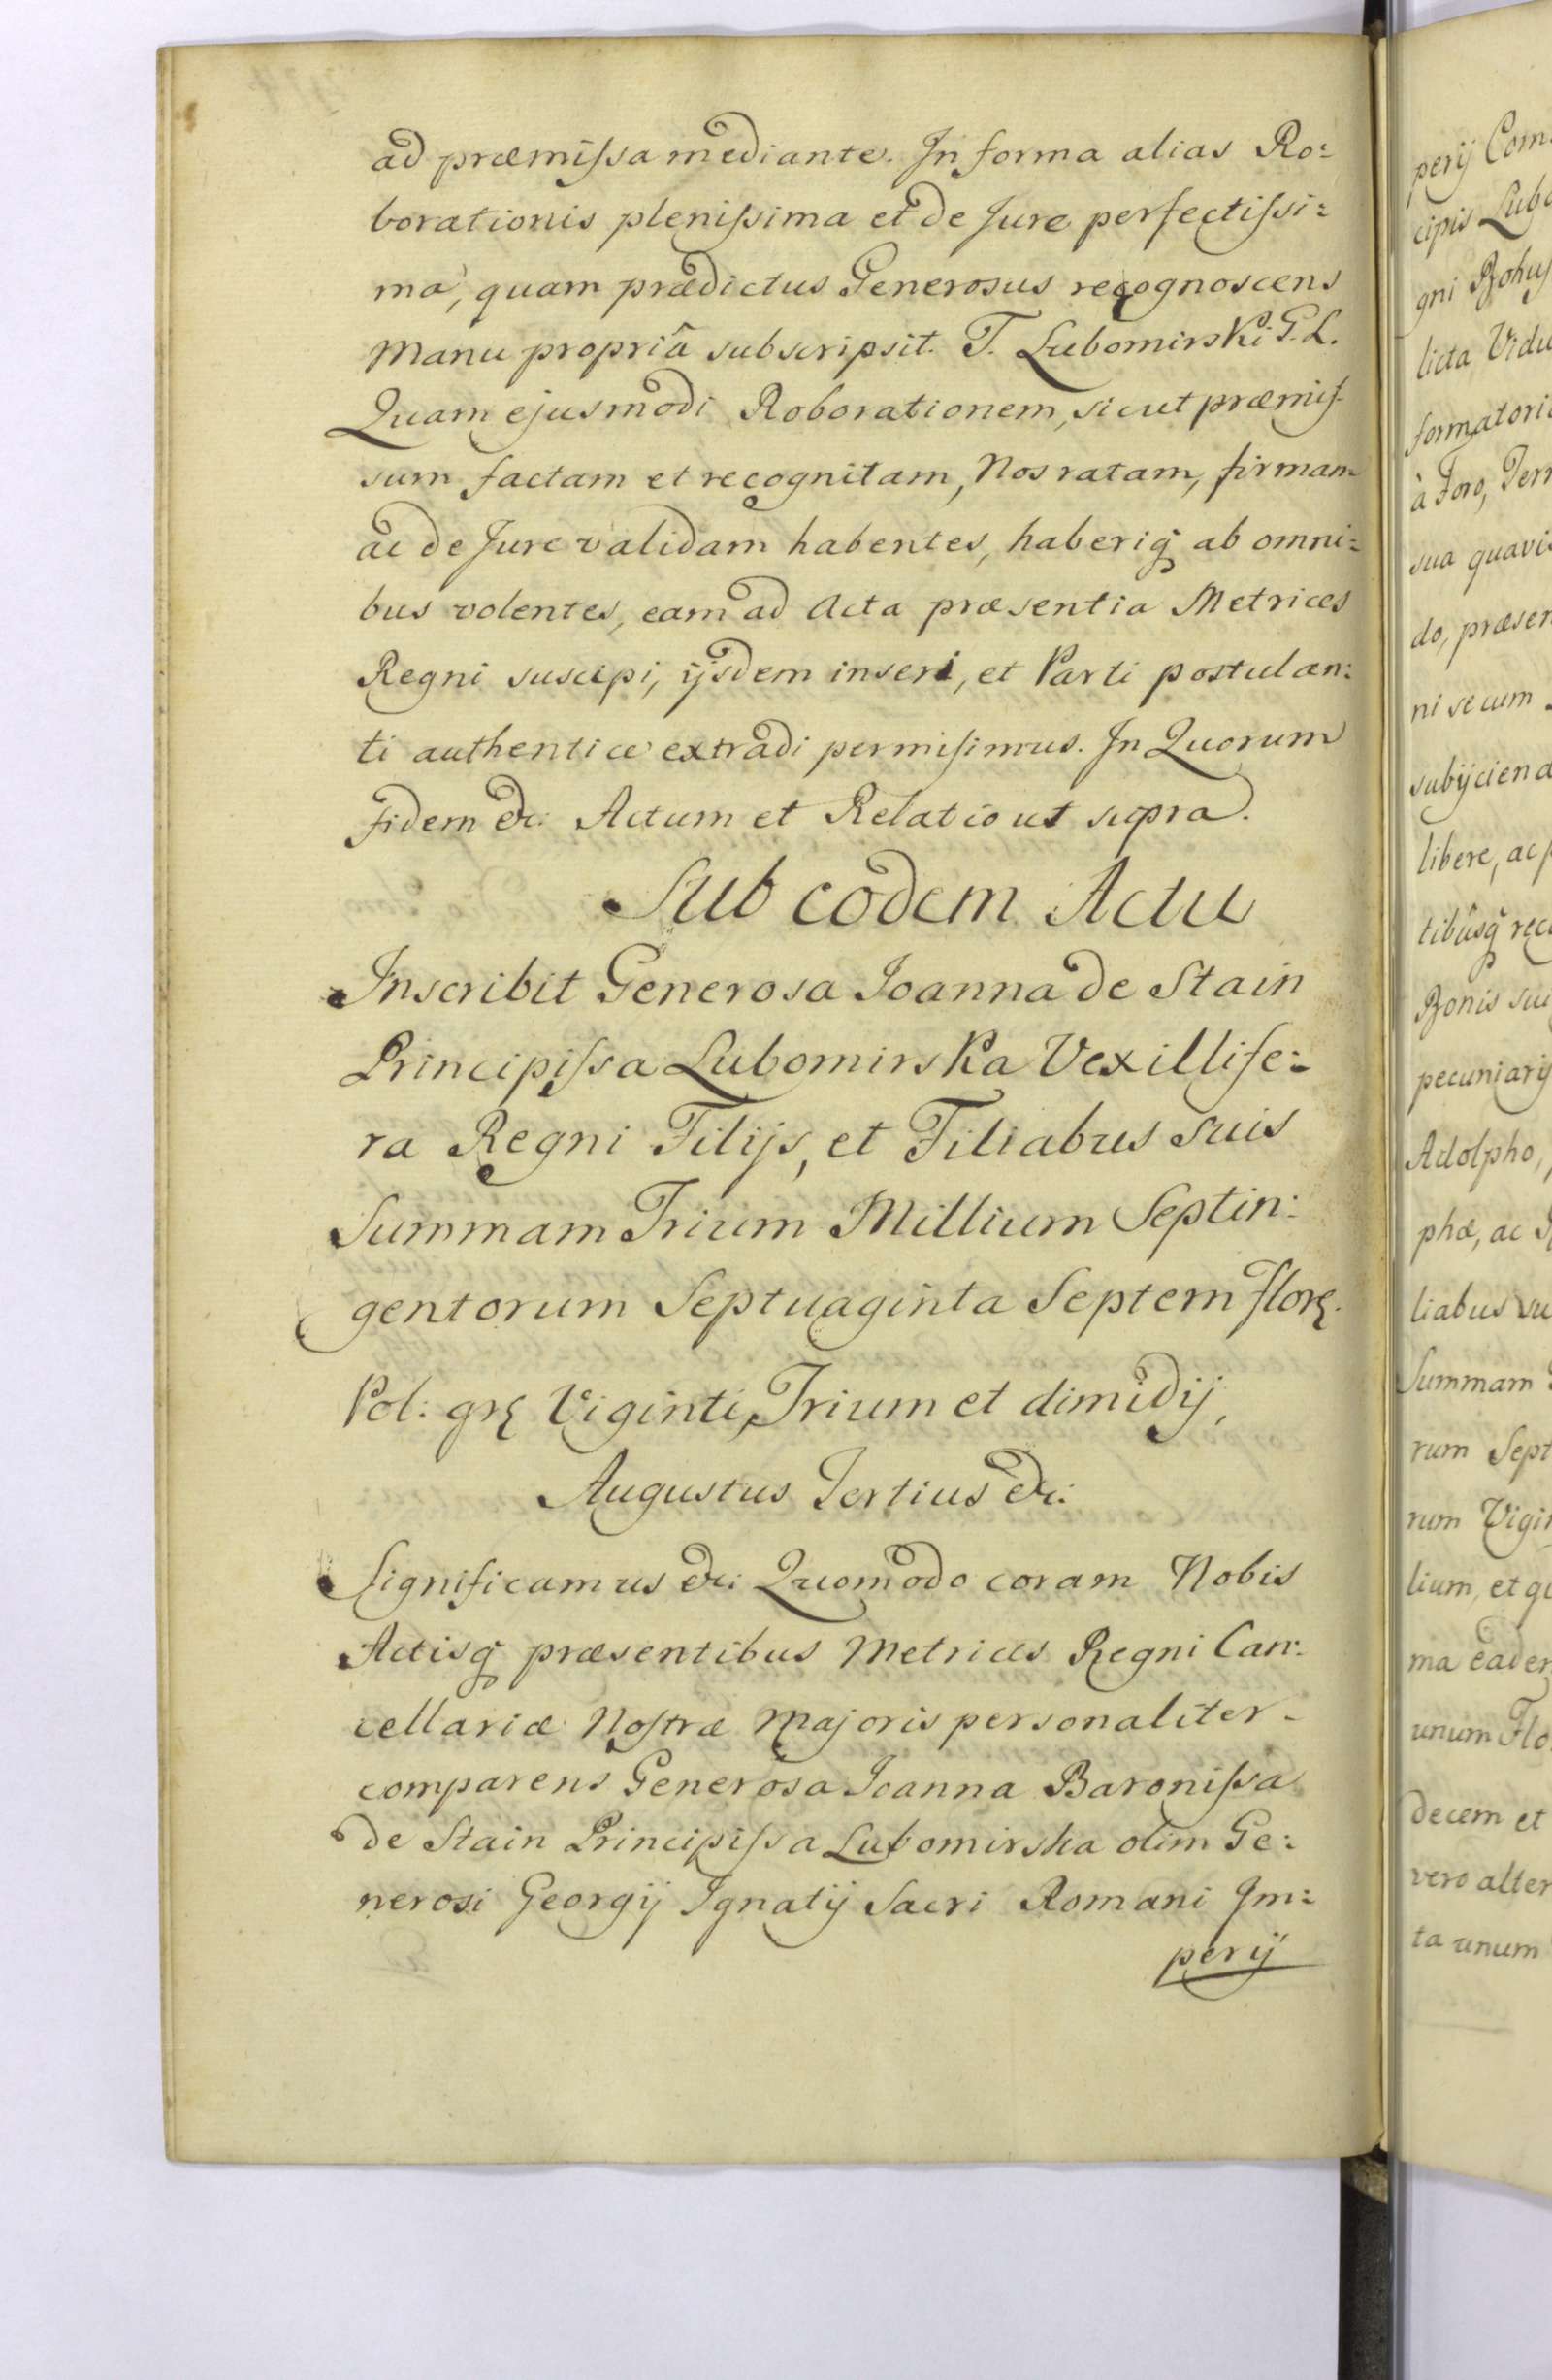 ad præmissa mediante. In forma alias Ro=
borationis plenissima et de Jure perfectissi=
ma, quam prædictus Generosus recognoscens
Manu propriâ subscripsit. T. Lubomirski G. L.
Quam ejusmodi Roborationem, sicut præmis-
sum factam et recognitam, Nos ratam, firmam
ac de Jure validam habentes, haberiq ab omni=
bus volentes, eam ad Acta præsentia Metrices
Regni suscipi, ijsdem inseri, et Parti postulan:
ti authentice extradi permisimus. In Quorum
Fidem &c: Actum et Relatio ut supra.
Sub eodem Actu
Inscribit Generosa Joanna de Stain
Principissa Lubomirska Vexillife=
ra Regni Filijs, et Filiabus suis
Summam Trium Millium Septin:
gentorum Septuaginta Septem flor.
Pol: gr Viginti, Trium et dimidij,
Augustus Tertius &c:
Significamus &c: Quomodo coram Nobis
Actisq præsentibus Metrices Regni Can:
cellariæ Nostræ Majoris personaliter-
comparens Generosa Joanna Baronissa
de Stain Principissa Lubomirska olim Ge:
nerosi Georgij Ignatij Sacri Romani Im=
perij
perij Com
cipis Lubo
gni Bohus
licta Vidu
formatori
à Foro, Terr
sua quavis
do, præsen
ni secum
subijciend
libere, ac
tibûsq rec
Bonis su
pecuniarij
Adolpho,
phæ, ac
liabus su
Summam
rum Sept
rum Vigin
lium, et q
ma eadem
unum Flo
decem et
vero alter
ta unum